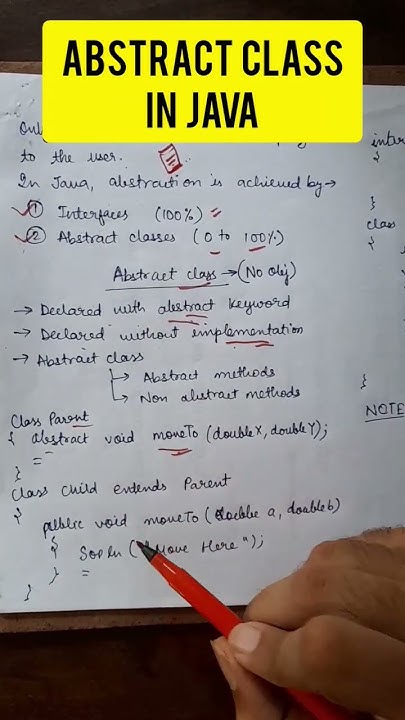 ABSTRACT CLASS
IN JAVA
to the user.
In Java, abstraction is achieved by→
① Interfaces (100%)
② Abstract classes (0 to 100%)
Abstract class → (No Obj)
→ Declared with abstract keyword
→ Declared without implementation
→ Abstract class
→ Abstract methods
→ Non abstract methods
Class Parent
{ abstract void moveTo (double X, double Y);
}
Class Child extends Parent
{
public void moveTo (double a, double b)
{
Sopln ("Move Here");
}
}
{
}
class
{
}
NOTE